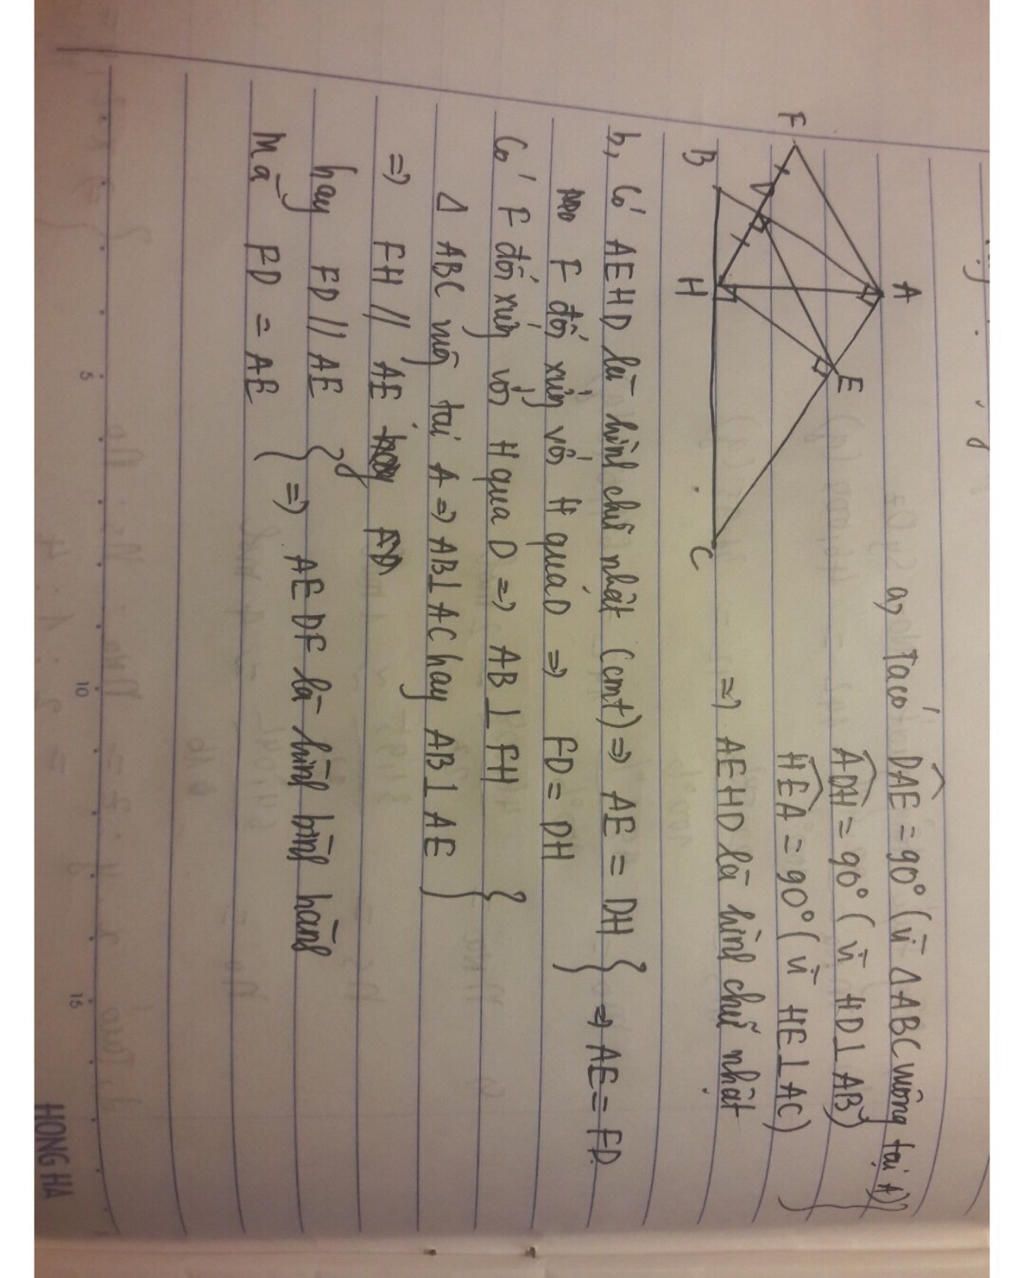 F
A
B
D
H
E
C
a, Ta có DAE = 90° (vì ΔABC vuông tại A)
ADH = 90° (vì HD⊥AB)
HEA = 90° (vì HE⊥AC)
=> AEHD là hình chữ nhật
b, Có AEHD là hình chữ nhật (cmt) => AE = DH
F đối xứng với H qua D => FD = DH
=> AE = FD.
Có F đối xứng với H qua D => AB ⊥ FH
Δ ABC vuông tại A => AB⊥AC hay AB⊥AE
=> FH // AE
hay FD // AE
Mà FD = AE
=> AEDF là hình bình hành
5
10
15
HONG HA